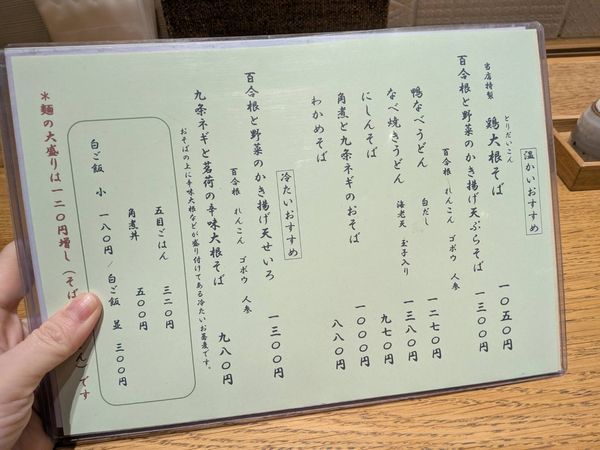 温かいおすすめ
当店特製 鶏大根そば 一〇五〇円
とりだいこん
百合根と野菜のかき揚げ天ぷらそば 一三〇〇円
百合根 れんこん ゴボウ 人参
鴨なべうどん 白だし 一二七〇円
なべ焼きうどん 海老天 玉子入り 一三八〇円
にしんそば 九七〇円
角煮と九条ネギのおそば 一〇〇〇円
わかめそば 八八〇円
冷たいおすすめ
百合根と野菜のかき揚げ天せいろ 一三〇〇円
百合根 れんこん ゴボウ 人参
九条ネギと茗荷の辛味大根そば 九八〇円
おそばの上に辛味大根などが盛り付けてある冷たいお蕎麦です。
五目ごはん 三二〇円
角煮丼 五〇〇円
白ご飯 小 一八〇円／白ご飯 並 三〇〇円
＊麺の大盛りは一二〇円増し（そば ん）です